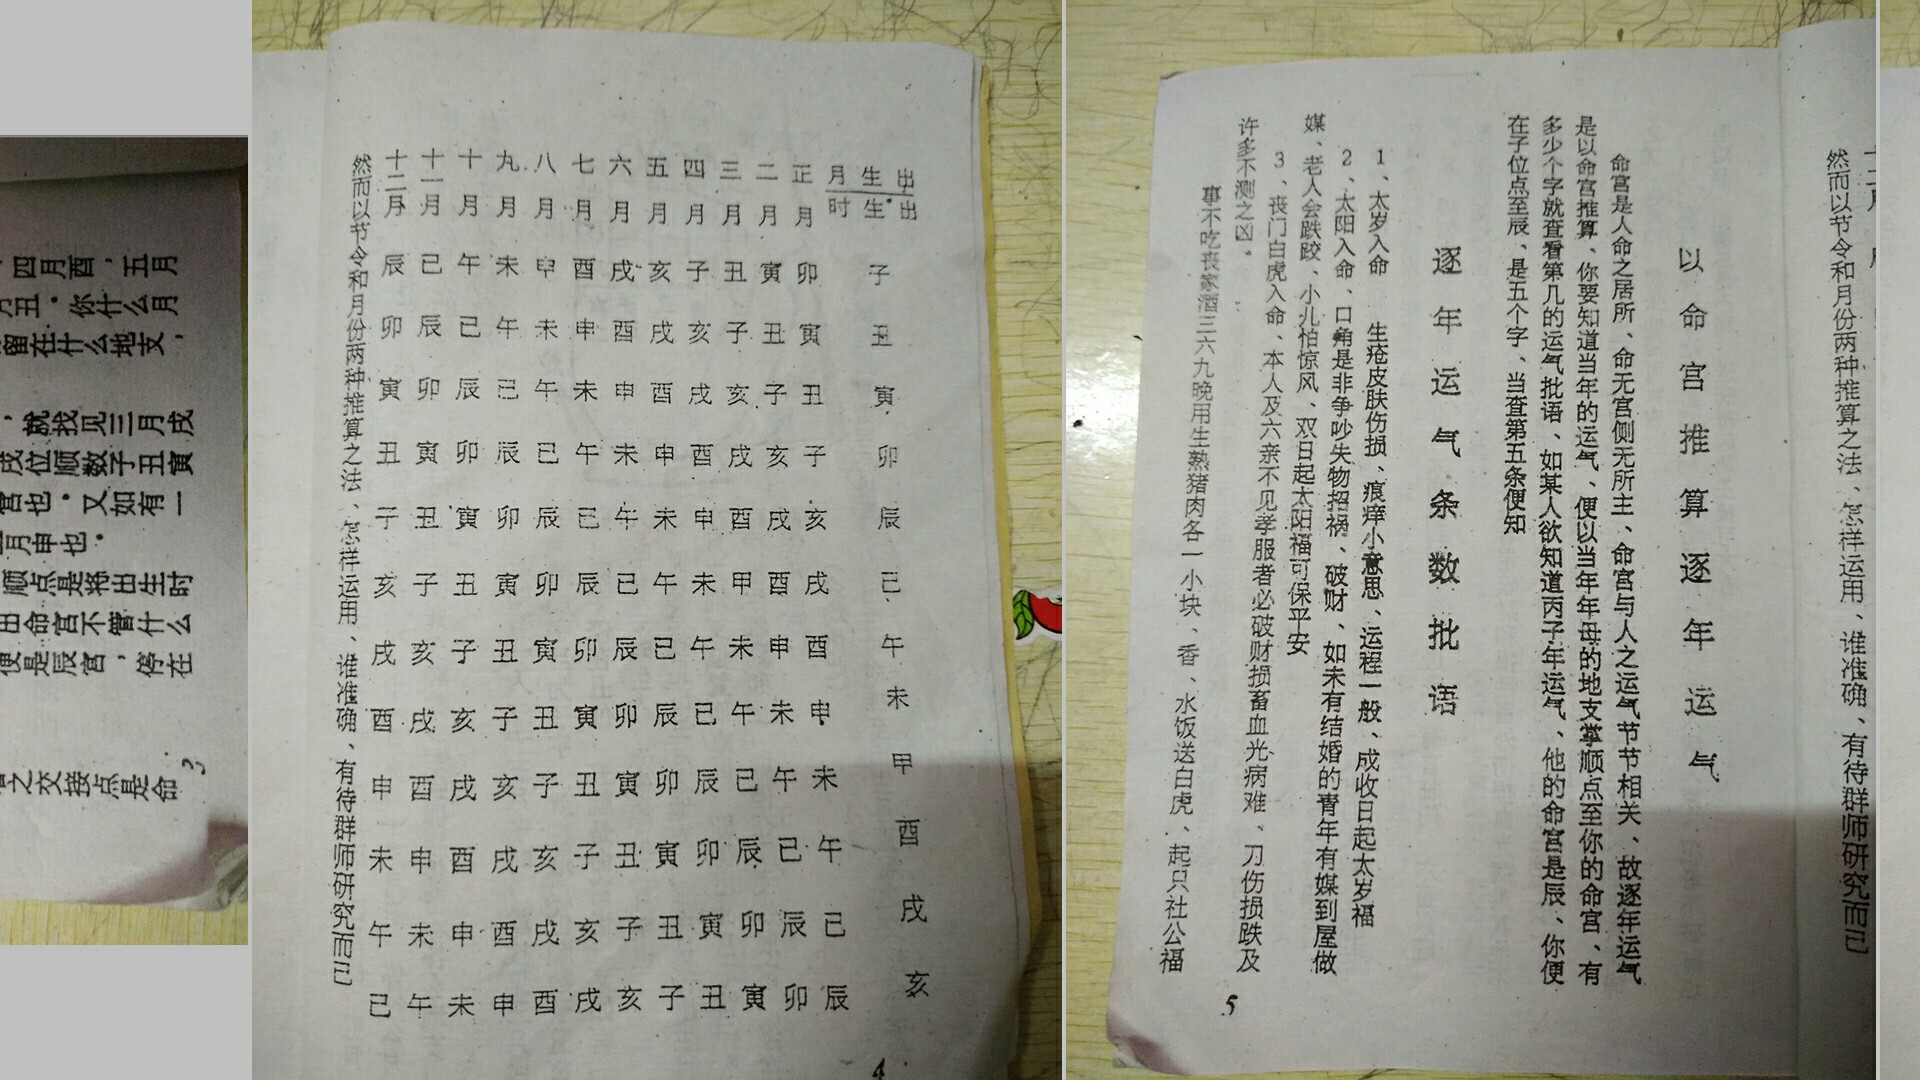 四月酉，五月
月丑。你什么月
留在什么地支，
，就找见三月戌
戌位顺数子丑寅
宫也。又如有一
月申也。
顺点是将出生时
出命宫不管什么
便是辰宫，停在
宫之交接点是命
3
出生月
出生时
子丑寅卯辰巳午未甲酉戌亥
正月卯寅丑子亥戌酉申未午巳辰
二月寅丑子亥戌酉申未午巳辰卯
三月丑子亥戌酉甲未午巳辰卯寅
四月子亥戌酉申未午巳辰卯寅丑
五月亥戌酉申未午巳辰卯寅丑子
六月戌酉申未午巳辰卯寅丑子亥
七月酉申未午巳辰卯寅丑子亥戌
八月申未午巳辰卯寅丑子亥戌酉
九月未午巳辰卯寅丑子亥戌酉申
十月午巳辰卯寅丑子亥戌酉申未
十一月巳辰卯寅丑子亥戌酉申未午
十二月辰卯寅丑子亥戌酉申未午巳
然而以节令和月份两种推算之法、怎样运用、谁准确、有待群师研究而已
4
以命宫推算逐年运气
命宫是人命之居所、命无宫侧无所主、命宫与人之运气节节相关、故逐年运气
是以命宫推算、你要知道当年的运气、便以当年年母的地支掌顺点至你的命宫、有
多少个字就查看第几的运气批语、如某人欲知道丙子年运气、他的命宫是辰、你便
在子位点至辰、是五个字、当查第五条便知
逐年运气条数批语
1、太岁入命 生疮皮肤伤损、痕痒小意思、运程一般、成收日起太岁福
2、太阳入命、口角是非争吵失物招祸、破财、如未有结婚的青年有媒到屋做
媒、老人会跌跤、小儿怕惊风、双日起太阳福可保平安
3、丧门白虎入命、本人及六亲不见孝服者必破财损畜血光病难、刀伤损跌及
许多不测之凶。
事不吃丧家酒三六九晚用生熟猪肉各一小块、香、水饭送白虎、起只社公福
5
然而以节令和月份两种推算之法、怎样运用、谁准确、有待群师研究而已